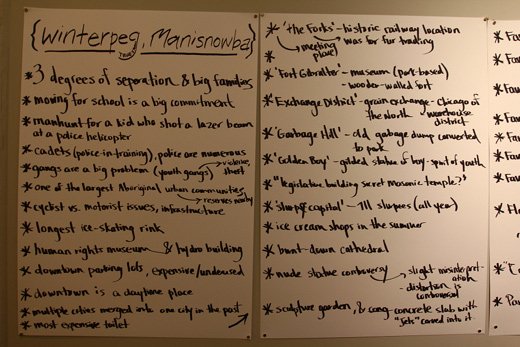 {Winterpeg, Manisnowba}
* 3 degrees of separation & big families
* moving for school is a big commitment
* manhunt for a kid who shot a lazer beam
at a police helicopter
* cadets (police-in-training), police are numerous
* gangs are a big problem (youth gangs) → violence,
theft
* one of the largest Aboriginal urban communities
→ reserves nearby
* cyclist vs. motorist issues, infrastructure
* longest ice-skating rink
* human rights museum & hydro building
* downtown parking lots, expensive/underused
* downtown is a daytime place
* multiple cities merged into one city in the past
* most expensive toilet
* 'the Forks' - historic railway location
→ meeting place
→ was for fur trading
*
* 'Fort Gibralter' - museum (part-based)
- wooden-walled fort
* 'Exchange District' - grain exchange - Chicago of
the North
warehouse
district
* 'Garbage Hill' - old garbage dump converted
to park
* 'Golden Boy' - gilded statue of boy - spirit of youth
* "legislative building secret masonic temple?"
* 'slurpee capital' - 7/11 slurpees (all year)
* ice cream shops in the summer
* burnt-down cathedral
* nude statue controversy → slight misinterpret-
ation
- distortion is
controversial
* sculpture garden, & long-concrete slab with
"Jets" carved into it